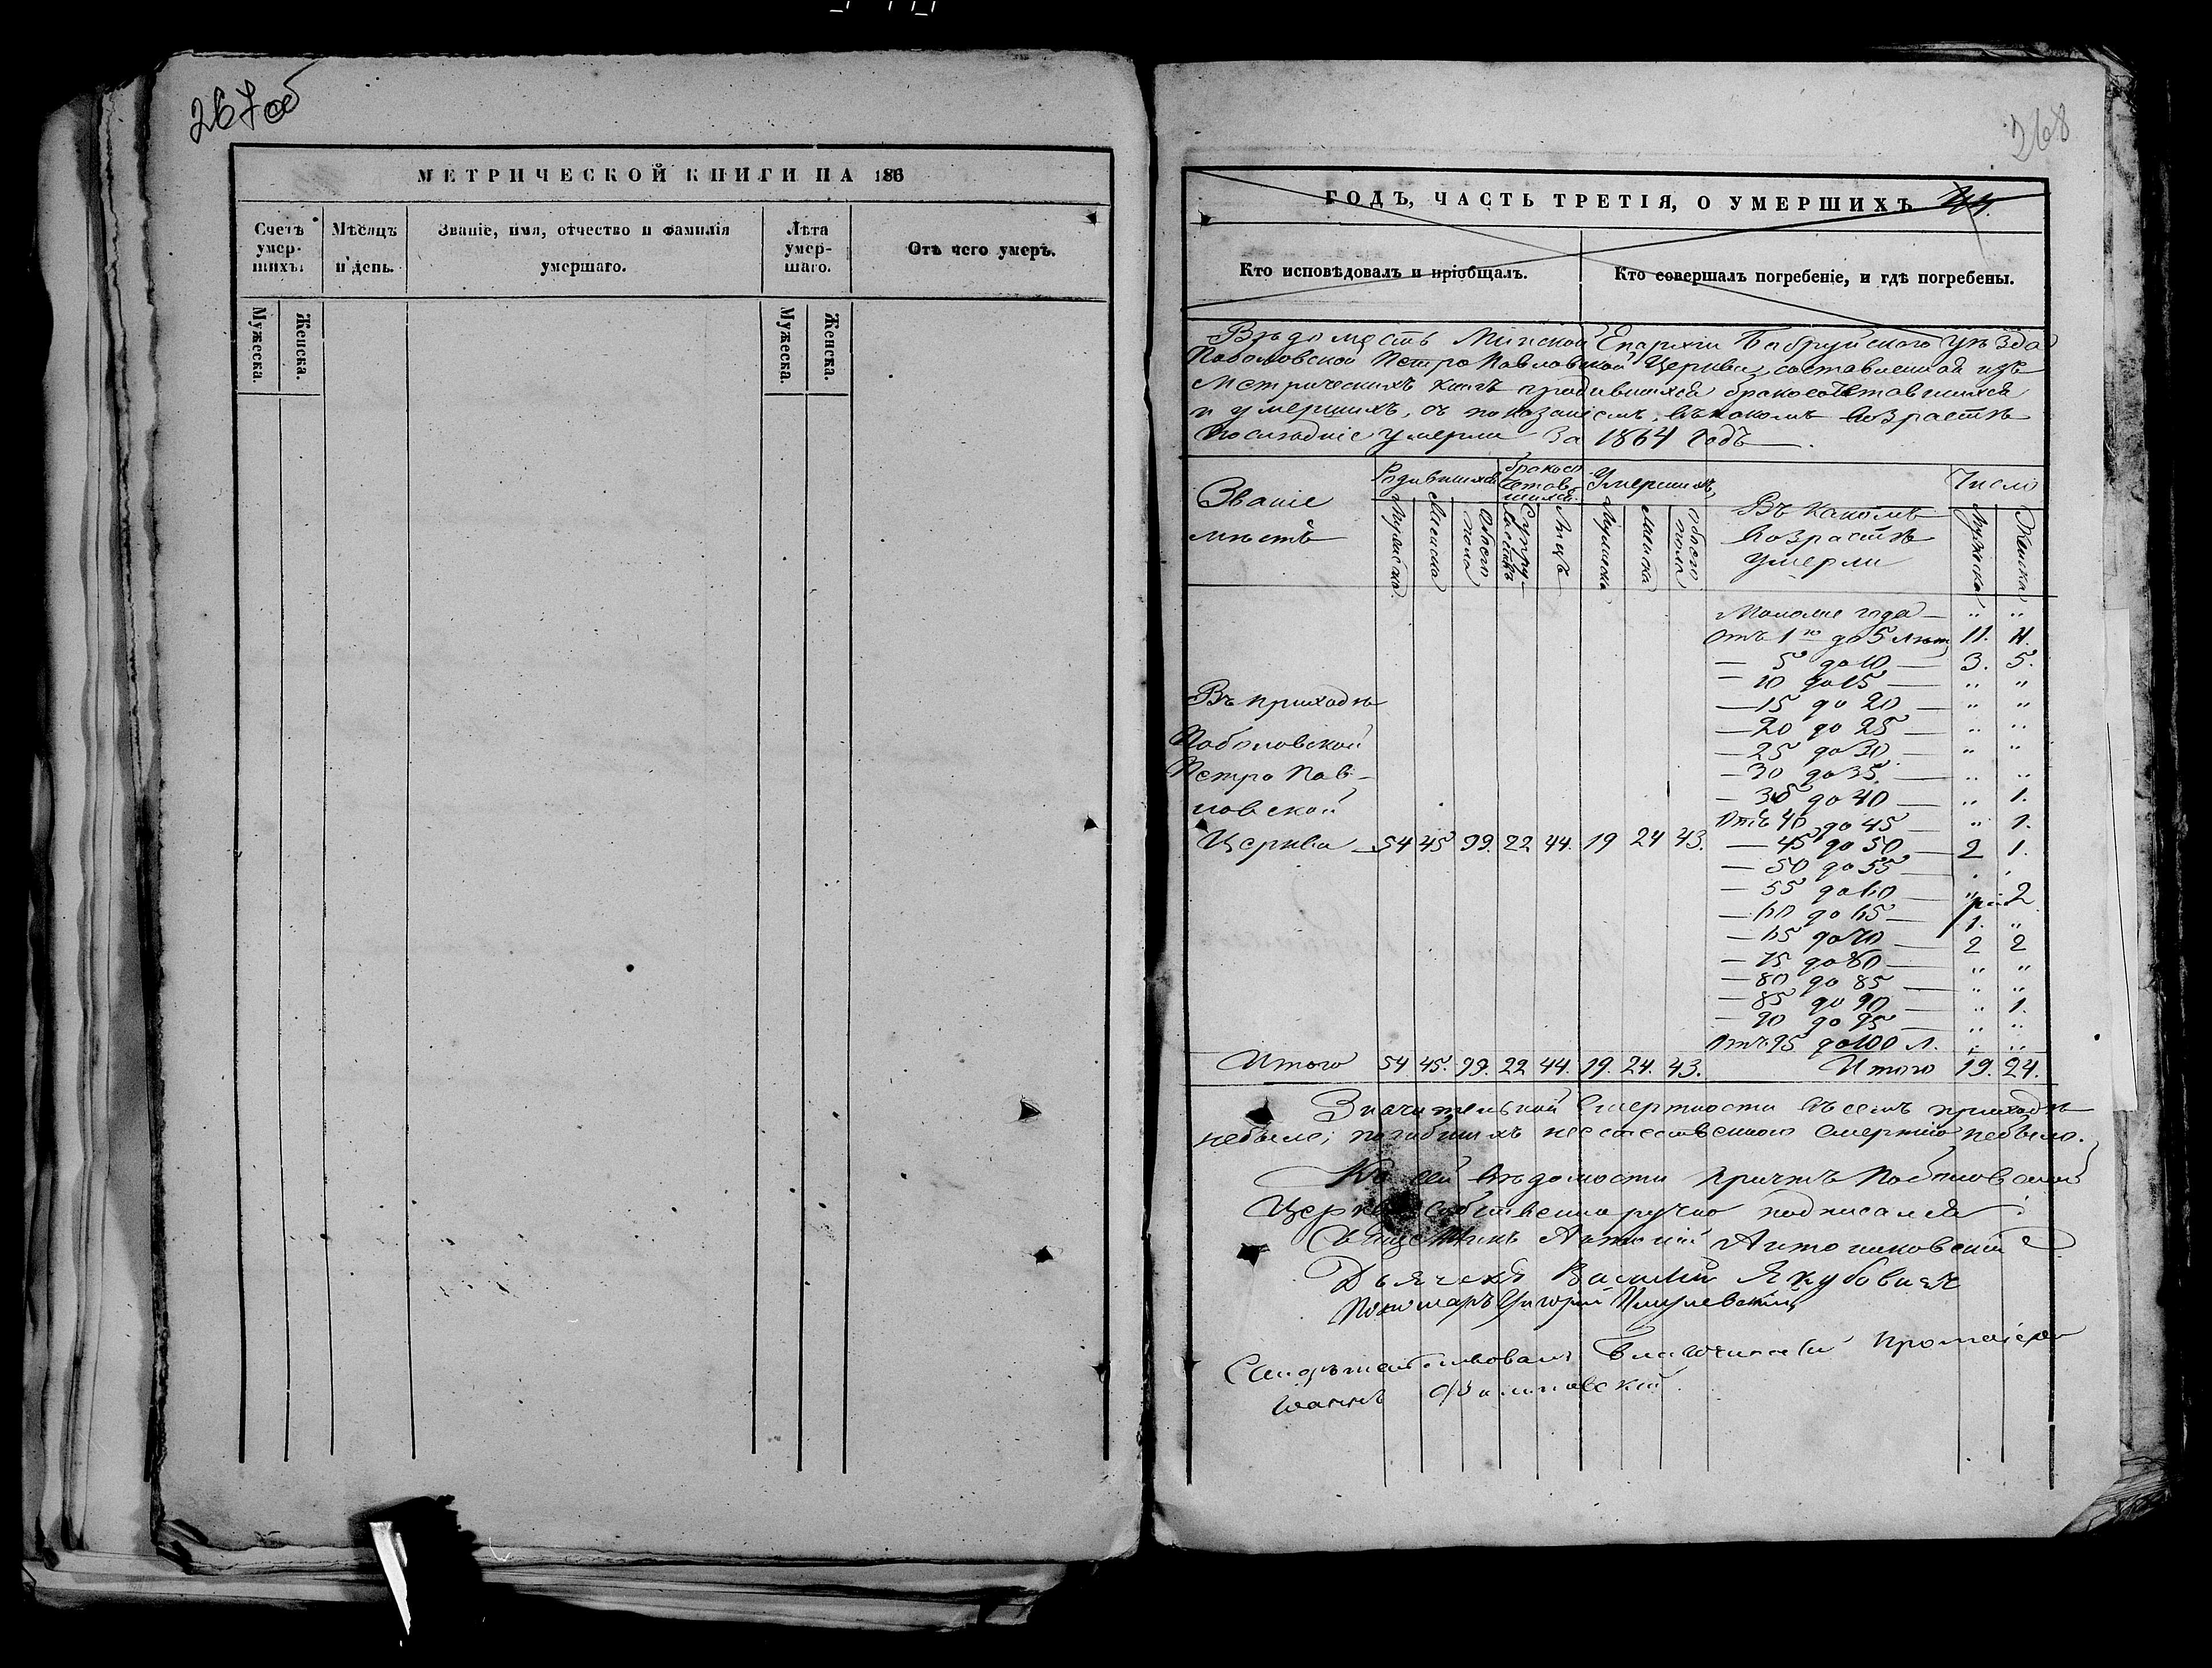 267об
МЕТРИЧЕСКОЙ КНИГИ НА 186
Счетъ умер-шихъ.
Мѣсяцъ и день.
Званіе, имя, отчество и фамилія умершаго.
Лѣта умер-шаго.
Отъ чего умеръ.
Мужеска.
Женска.
Мужеска.
Женска.
268
ГОДЪ, ЧАСТЬ ТРЕТІЯ, О УМЕРШИХЪ
Кто исповѣдовалъ и пріобщалъ.
Кто совершалъ погребеніе, и гдѣ погребены.
Вѣдомость Минской Епархіи Бобруйского уѣзда
Поболовской Петро Павловской Церкви составленная изъ
Метрическихъ книгъ о родившихся бракосочетавшихся
и умершихъ, съ показаніемъ, въ какомъ возрастѣ
послѣдніе умерли за 1864 годъ
Званіе мѣстъ
Родившихся
бракосо четав шихся
Умершихъ
Въ какомъ возрастѣ умерли
Число
Мужеска
Женска
Обоего пола
Супружествъ
Лицъ
Мужеска
Женска
обоего пола
Мужеска
Женска
Моложе года — " "
Отъ 1го до 5 лѣтъ 11. 11.
— 5 до 10 — 3. 5.
— 10 до 15 — " "
Въ приходѣ
— 15 до 20 — " "
— 20 до 25 — " "
Поболовской
— 25 до 30 — " "
Петро Пав-
— 30 до 35 — " "
ловской
— 35 до 40 — " 1.
Отъ 40 до 45 — " 1.
Церкви — 54 45 99. 22 44. 19 24 43.
— 45 до 50 — 2 1.
— 50 до 55 —
— 55 до 60 — " 2
— 60 до 65 — 1. "
— 65 до 70 — 2 2
— 75 до 80 — " "
— 80 до 85 — " "
— 85 до 90 — " 1.
— 90 до 95 — " "
Отъ 95 до 100 л. " "
Итого 54 45. 99. 22 44. 19. 24. 43. Итого 19. 24.
Значительной смертности въ семъ приходѣ
небыло; погибшихъ неестественною смертію небыло.
Къ сей вѣдомости причтъ Поболовской
Церкви собственноручно подписался:
Священникъ Антоній Антониковскій
Дьячекъ Василій Якубовичъ
Пономарь Григорій
Свидѣтельствовалъ Благочинный Протоіерей
Іоаннъ